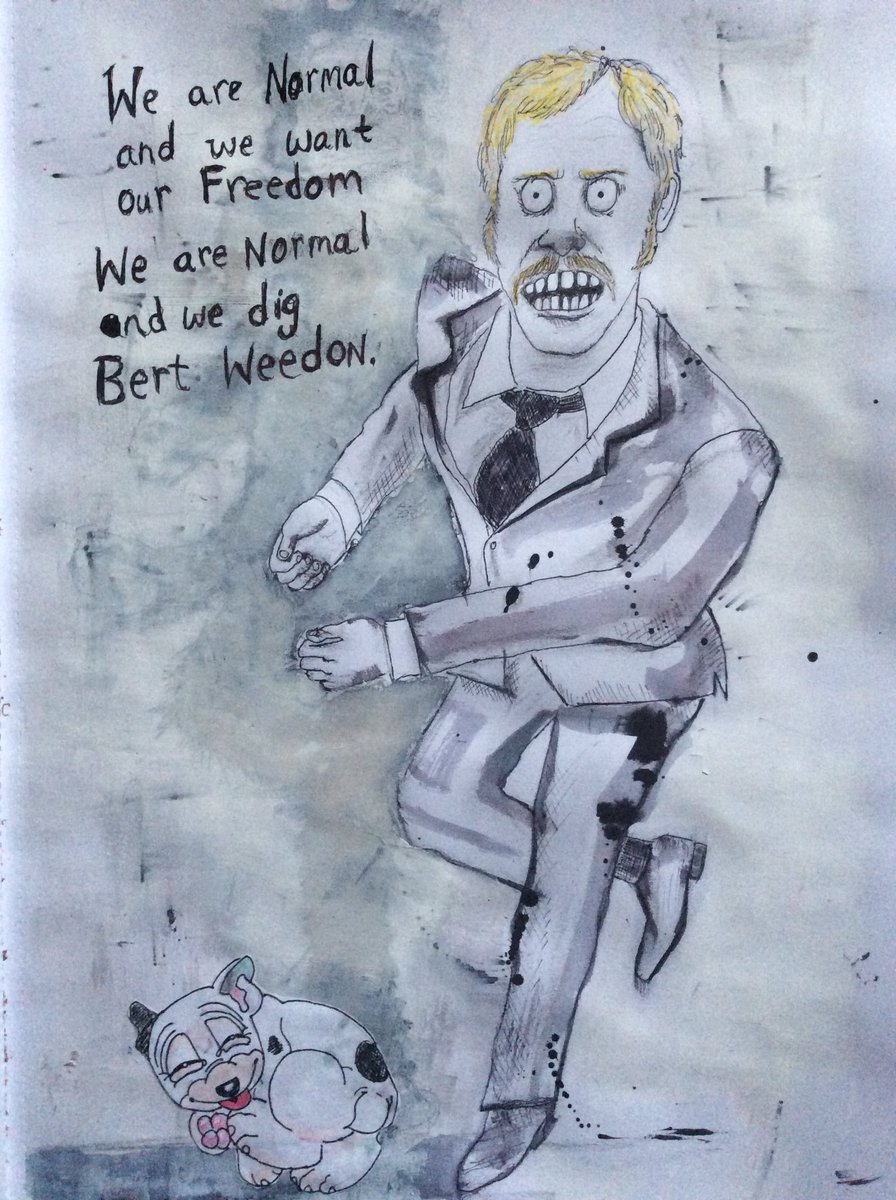 We are Normal
and we want
our Freedom
We are Normal
and we dig
Bert Weedon.